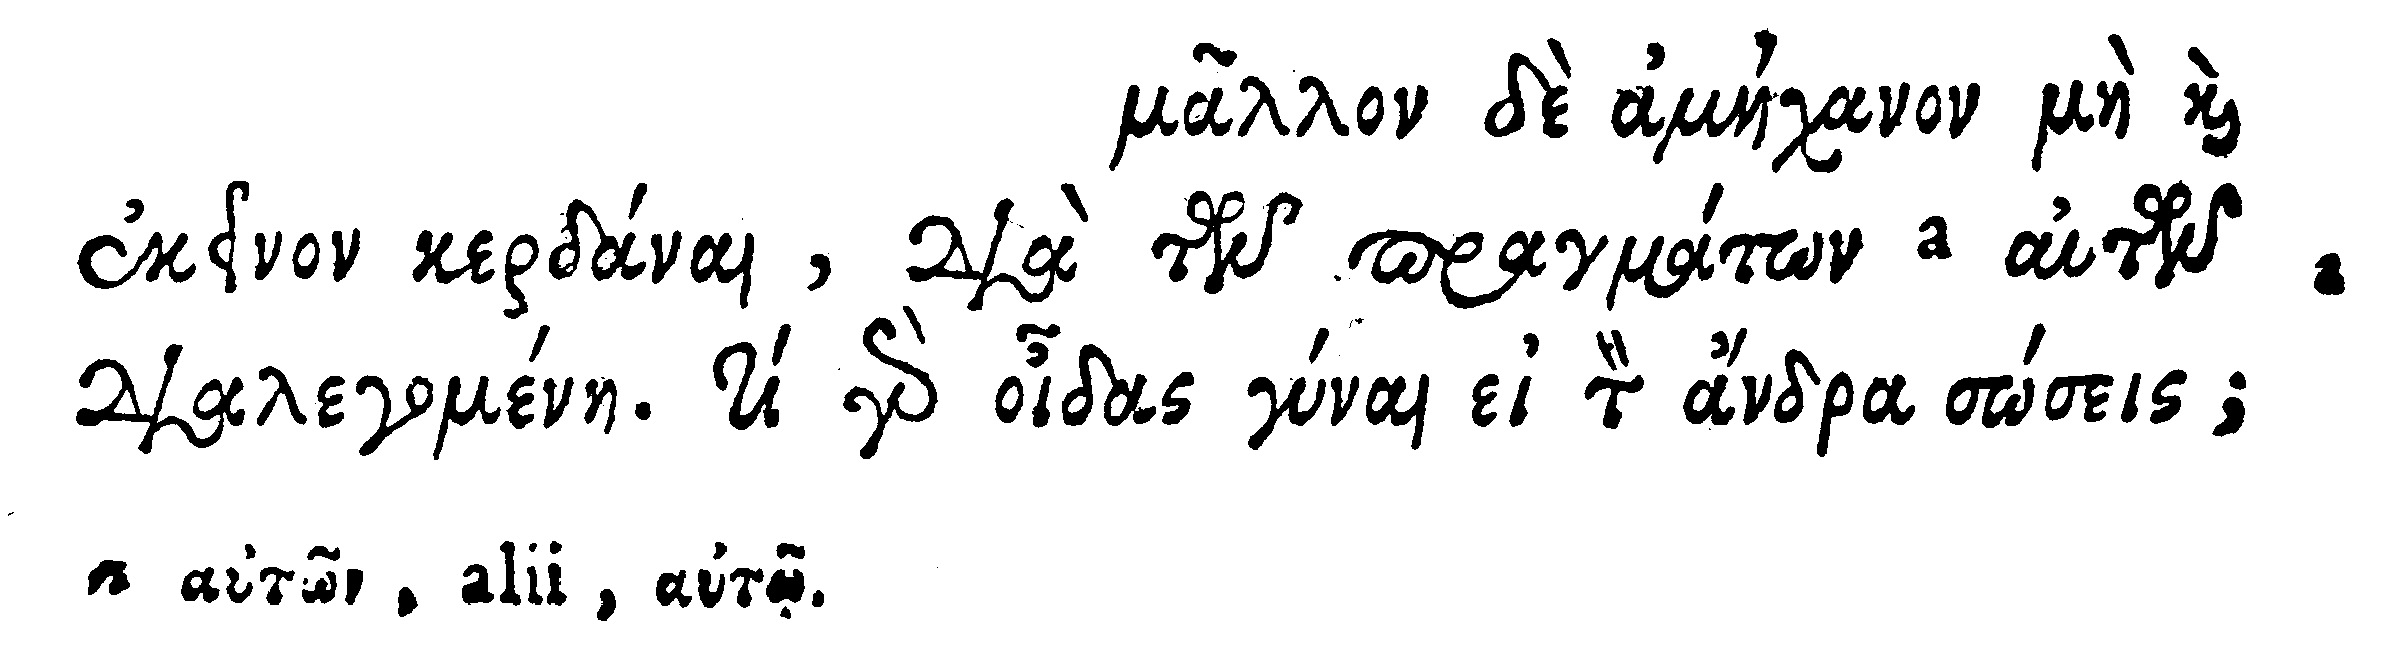 μᾶλλον δὲ ἀμήχανον μὴ καὶ
ἐκεῖνον κερδάναι, διὰ τῶν πραγμάτων a αὐτῶν
διαλεγομένη. τί γὰρ οἶδας γύναι εἰ τὸν ἄνδρα σώσεις;
a αὐτῶν, alii, αὐτῷ.